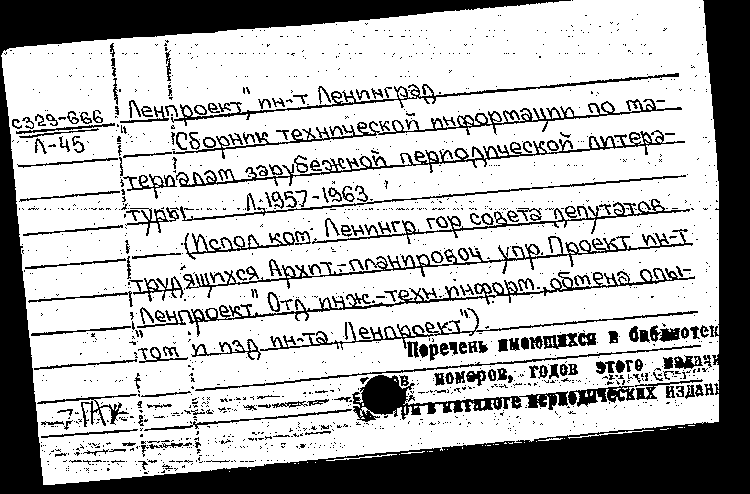 с329-666
Л-45
Ленпроект", ин-т Ленинград.
"Сборник технической информации по ма-
териалам зарубежной периодической литера-
туры. Л., 1957-1963.
(Испол. ком. Ленингр. гор. совета депутатов
трудящихся. Архит.-планировоч. упр. Проект. ин-т
"Ленпроект". Отд. инж.-техн. информ., обмена опы-
том и изд. ин-та „Ленпроект")
Перечень имеющихся в библиотек
номеров, годов этого издани
в каталоге периодических издани
7 ГАК